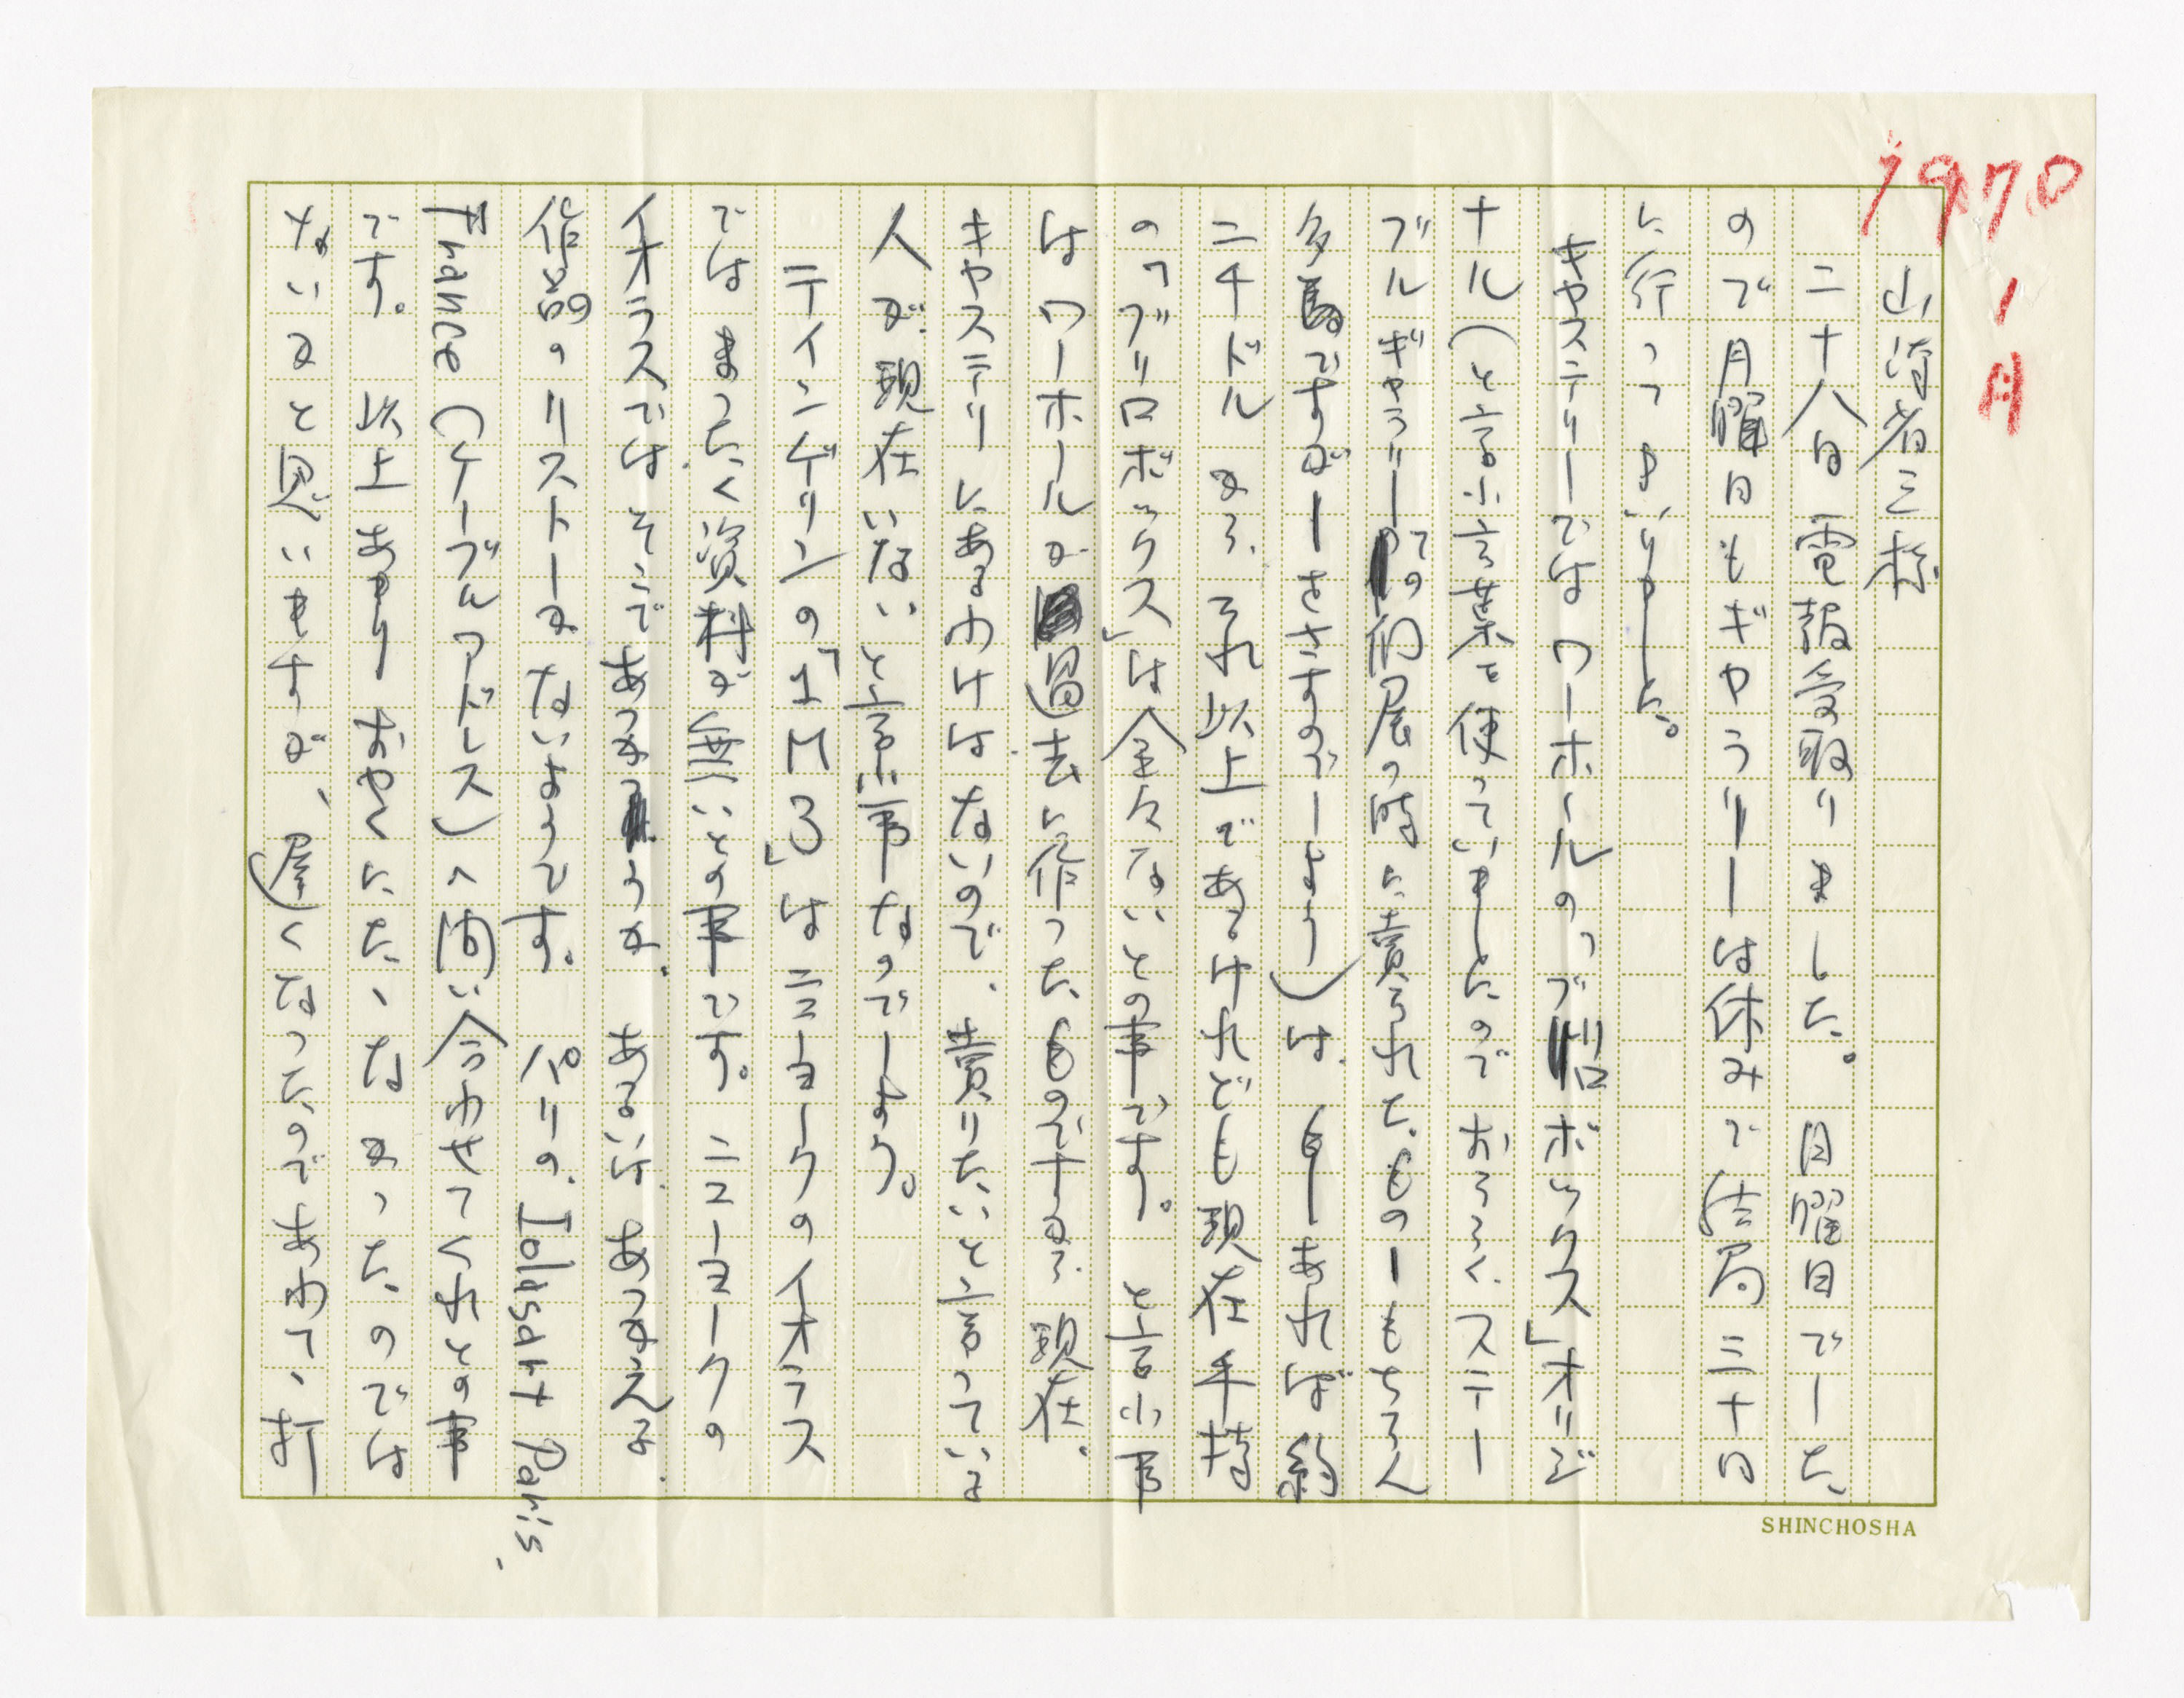 1970
1月
山済省三様
二十八日電報受取りました。 月曜日でした
ので月曜日もギャラリーは休みで結局三十日
に行ってまいりました。
キャステリーではワーホールの「ブリロボックス」オリジ
ナル(と言ふ言葉を使っていましたのでおそらくステー
ブルギャラリーでの個展の時に賣られたもの―もちろん
多量ですが―をさすのでしょう)は、もしあれば約
二千ドルから、それ以上であるけれども現在手持
の「ブリロボックス」は全々ないとの事です。 と言ふ事
はワーホールが過去に作ったものですから、現在、
キャステリーにあるわけはないので、賣りたいと言っている
人が、現在いないと言ふ事なのでしょう。
ティンゲリンの「1M3」はニューヨークのイオラス
ではまったく資料が無いとの事です。 ニューヨークの
イオラスでは、そこであつかつた、あるいは、あつかえる、
作品のリストしかないようです。 パリの、Iolasart Paris,
France(ケーブルアドレス)へ問い合わせてくれとの事
です。 以上あまりおやくにたたなかったのでは
ないかと思いますが、遅くなったのであわてて、折
SHINCHOSHA